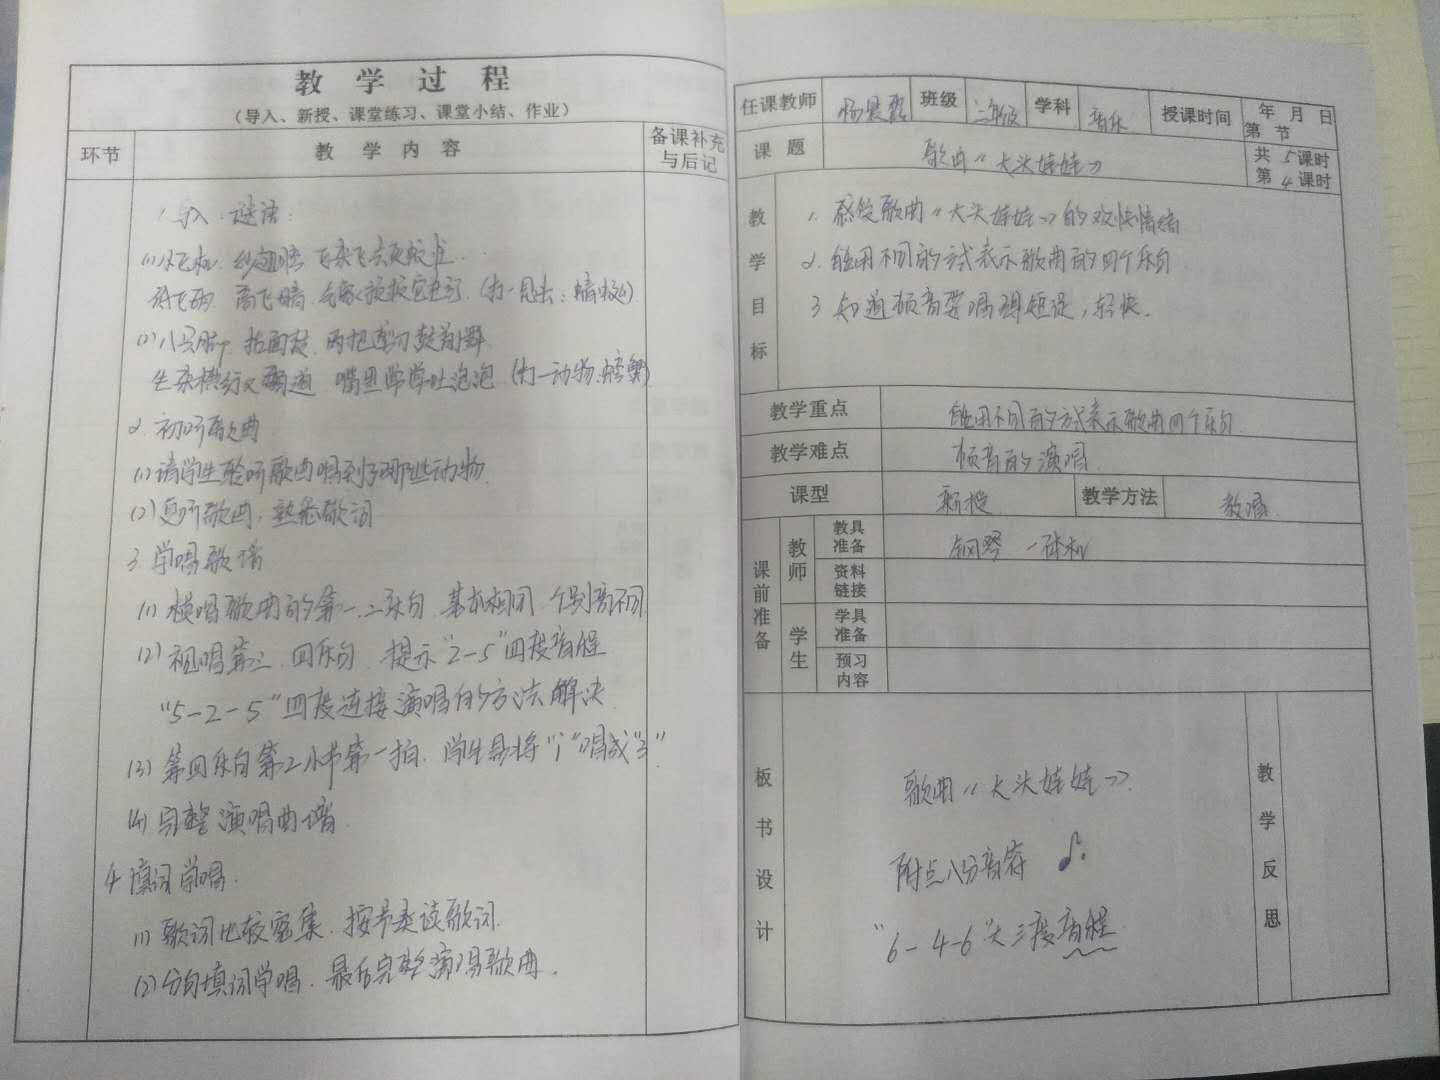 教 学 过 程
（导入、新授、课堂练习、课堂小结、作业）
环节 教 学 内 容 备课补充与后记
1. 导入 谜语：
(1)小飞机 纱翅膀 飞来飞去
(打一昆虫：蜻蜓)
(2)八只脚 抬面鼓 两把剪刀鼓前舞
生来横行又霸道 嘴里常常吐泡泡 (打一动物：螃蟹)
2. 初听歌曲
(1)请学生聆听歌曲唱到了哪些动物
(2)复听歌曲，熟悉歌词
3. 学唱歌谱
(1) 模唱歌曲的第一、二乐句，基本相同，个别音不同
(2) 视唱第三、四乐句，提示“2-5”四度音程
“5-2-5”四度连接演唱的方法解决
(3) 第四乐句第2小节第一拍，学生易将“i”唱成“3”
(4) 完整演唱曲谱
4. 填词学唱.
(1) 歌词比较密集，按节奏读歌词.
(2) 分句填词学唱，最后完整演唱歌曲.
任课教师 班级 三年级 学科 音乐 授课时间 年 月 日
第 节
课 题 歌曲《大头娃娃》 共 5 课时
第 4 课时
教学目标
1. 感受歌曲《大头娃娃》的欢快情绪
2. 能用不同的方式表示歌曲的四个乐句
3. 知道顿音要唱得短促，轻快。
教学重点 能用不同的方式表示歌曲四个乐句.
教学难点 顿音的演唱
课型 新授 教学方法 教唱
课前准备
教师 教具准备 钢琴 一体机
资料链接
学生 学具准备
预习内容
板书设计
歌曲《大头娃娃》
附点八分音符 ♪.
“6-4-6”大三度音程
教学反思